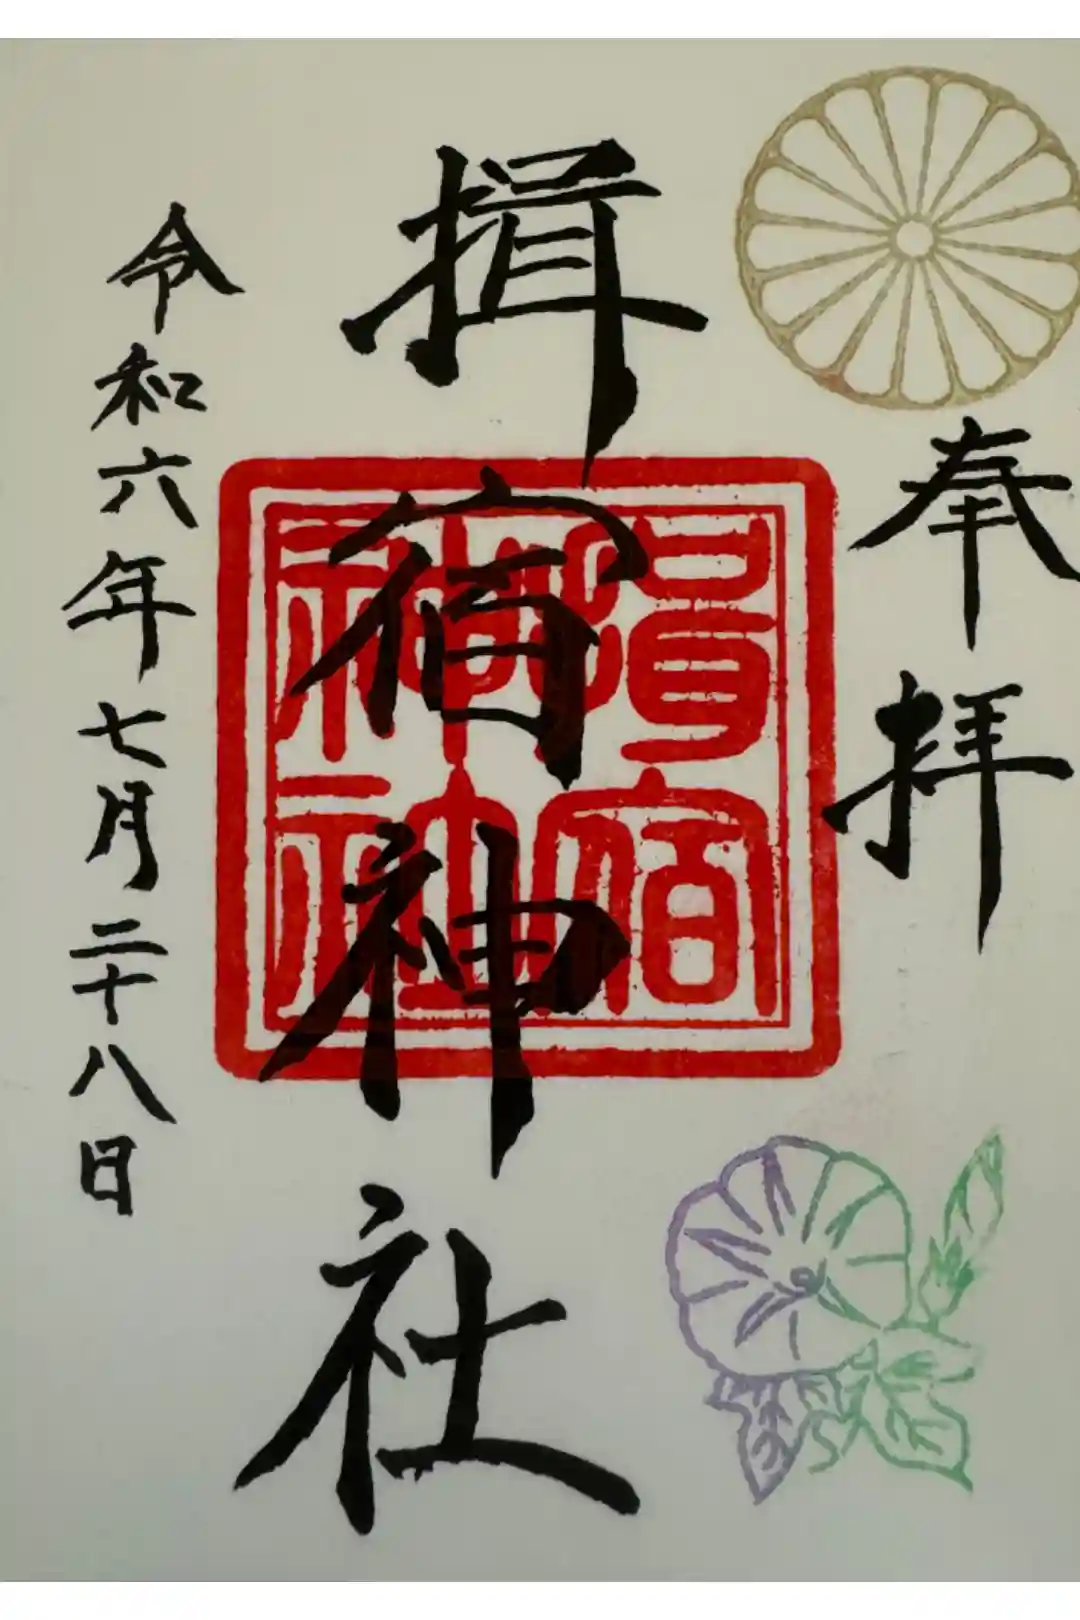 奉拝
揖宿神社
揖宿
神社
令和六年七月二十八日